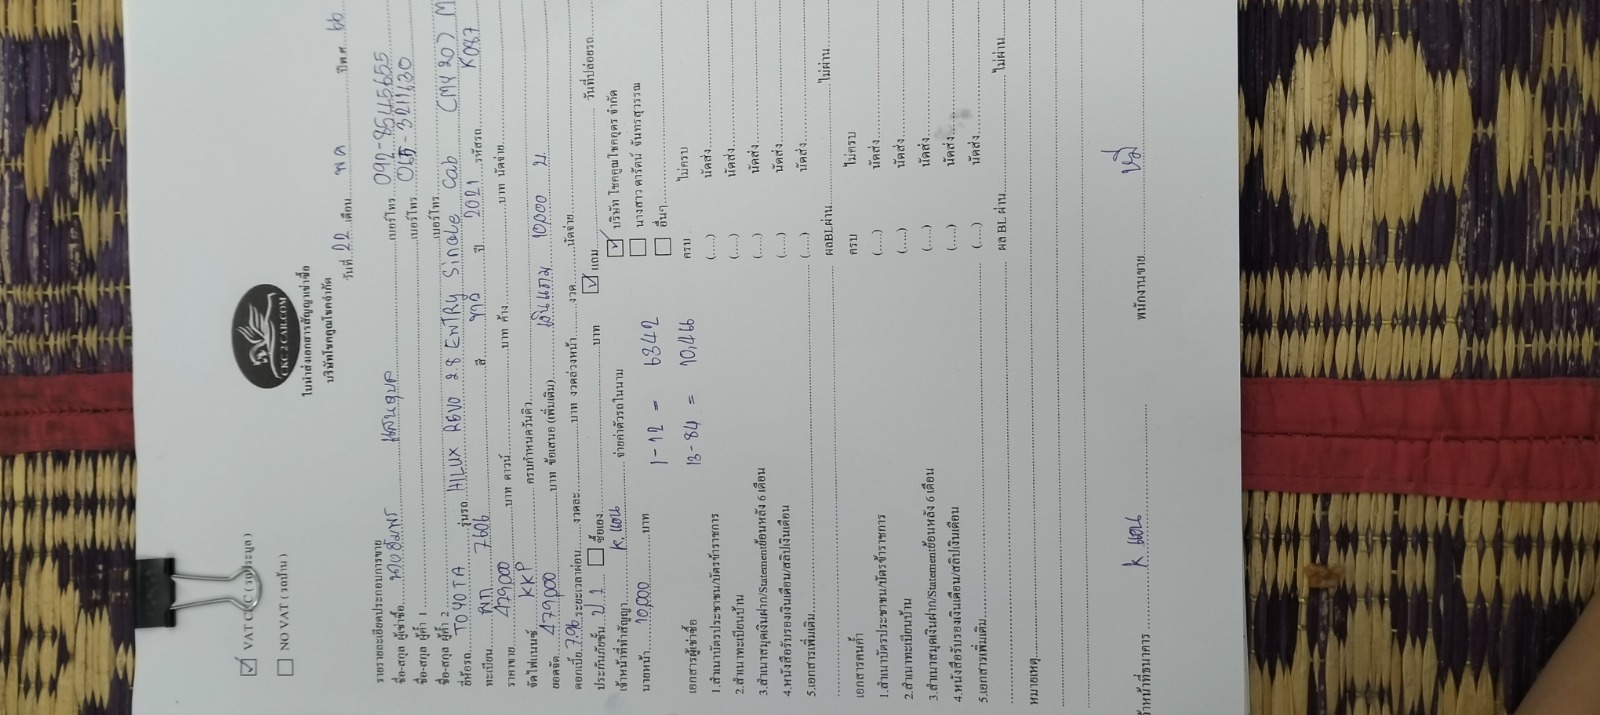 CKC 2 CAR.COM
ใบนำส่งเอกสารสัญญาเช่าซื้อ
บริษัทโชคคูณโชคจำกัด
☑ VAT CKC (รถประมูล)
☐ NO VAT (รถบ้าน)
วันที่ 22 เดือน พค ปีพ.ศ. 66
รายรายละเอียดประกอบการขาย
ชื่อ-สกุล ผู้เช่าซื้อ แสนอุบล เบอร์โทร. 092-8545655
ชื่อ-สกุล ผู้ค้ำ 1 เบอร์โทร. 065-3211130
ชื่อ-สกุล ผู้ค้ำ 2 เบอร์โทร.
ยี่ห้อรถ TOYOTA รุ่นรถ HILUX REVO 2.8 ENTRY Single Cab (MY 20) M
ทะเบียน 7606 สี ขาว ปี 2021 รหัสรถ K087
ราคาขาย 479,000 บาท ดาวน์ บาท ค้าง บาท นัดจ่าย
จัดไฟแนนซ์ KKP ครบกำหนดวันคิว
ยอดจัด 479,000 บาท ข้อเสนอ (เพิ่มเติม) เงินแถม 10,000 บ.
ดอกเบี้ย 7.96 ระยะเวลาผ่อน งวดละ บาท งวดล่วงหน้า งวด นัดจ่าย
ประกันภัยชั้น ป 1 ☐ ซื้อเอง บาท ☑ แถม วันที่ปล่อยรถ
เจ้าหน้าที่ทำสัญญา K. แอน จ่ายค่าตัวรถในนาม ☑ บริษัท โชคคูณโชคคูคร จำกัด
นายหน้า 10,000 บาท 1-12 = 6342 ☐ นางสาว ดารัตน์ จันทรสุวรรณ
☐ อื่นๆ
13-84 = 10,466
เอกสารผู้เช่าซื้อ ครบ ไม่ครบ
1.สำเนาบัตรประชาชน/บัตรข้าราชการ (....) นัดส่ง
2.สำเนาทะเบียนบ้าน (....) นัดส่ง
3.สำเนาสมุดเงินฝาก/Statementย้อนหลัง 6 เดือน (....) นัดส่ง
4.หนังสือรับรองเงินเดือน/สลิปเงินเดือน (....) นัดส่ง
5.เอกสารเพิ่มเติม (....) นัดส่ง
ผลBLผ่าน ไม่ผ่าน
เอกสารคนค้ำ ครบ ไม่ครบ
1.สำเนาบัตรประชาชน/บัตรข้าราชการ (....) นัดส่ง
2.สำเนาทะเบียนบ้าน (.....) นัดส่ง
3.สำเนาสมุดเงินฝาก/Statementย้อนหลัง 6 เดือน (....) นัดส่ง
4.หนังสือรับรองเงินเดือน/สลิปเงินเดือน (....) นัดส่ง
5.เอกสารเพิ่มเติม (....) นัดส่ง
ผล BL ผ่าน ไม่ผ่าน
หมายเหตุ
จ้าหน้าที่ธนาคาร K แอน พนักงานขาย